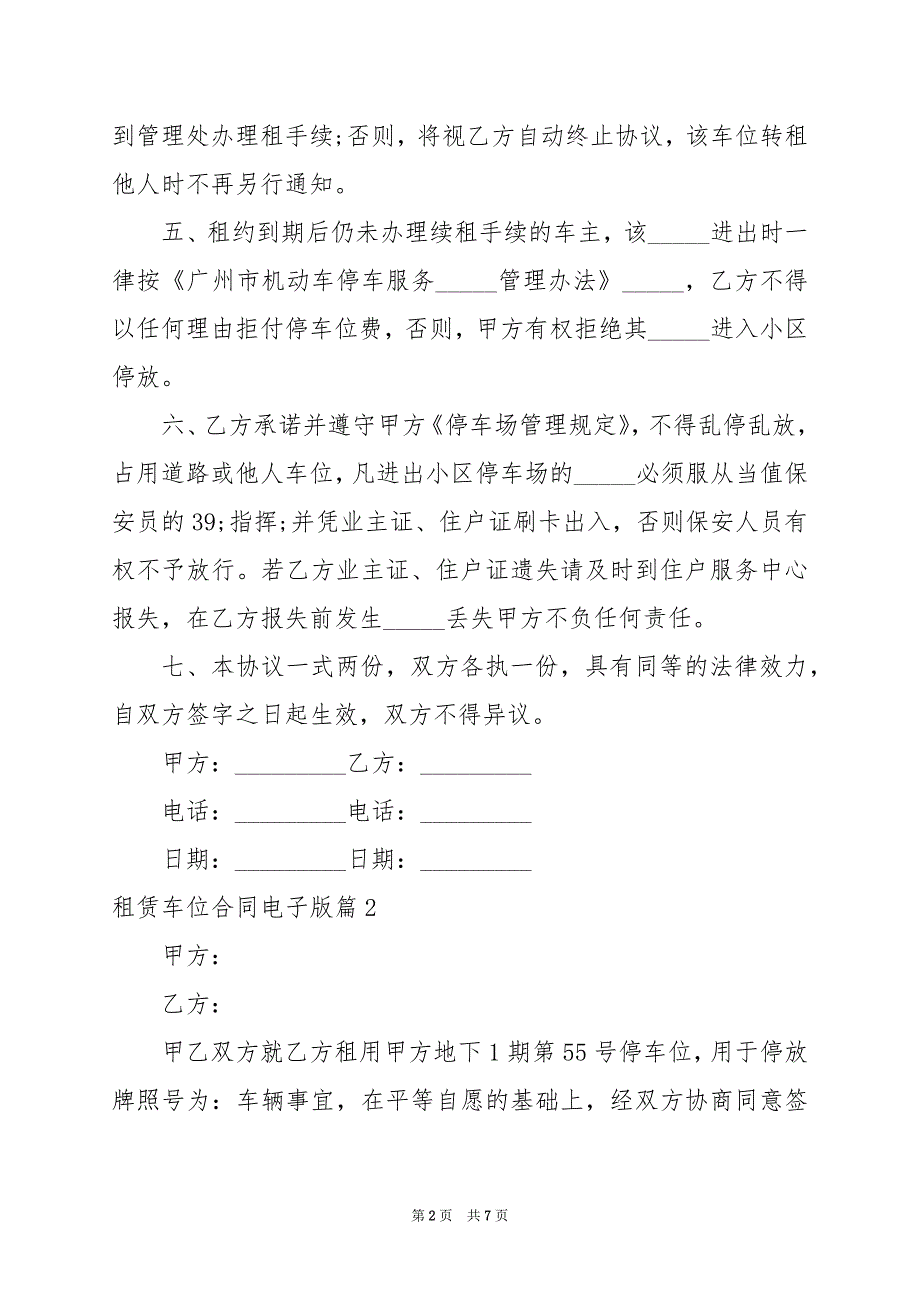 到管理处办理租手续;否则，将视乙方自动终止协议，该车位转租
他人时不再另行通知。
五、租约到期后仍未办理续租手续的车主，该_____进出时一
律按《广州市机动车停车服务_____管理办法》_____，乙方不得
以任何理由拒付停车位费，否则，甲方有权拒绝其_____进入小区
停放。
六、乙方承诺并遵守甲方《停车场管理规定》，不得乱停乱放，
占用道路或他人车位，凡进出小区停车场的_____必须服从当值保
安员的 39;指挥;并凭业主证、住户证刷卡出入，否则保安人员有
权不予放行。若乙方业主证、住户证遗失请及时到住户服务中心
报失，在乙方报失前发生_____丢失甲方不负任何责任。
七、本协议一式两份，双方各执一份，具有同等的法律效力，
自双方签字之日起生效，双方不得异议。
甲方：_________乙方：_________
电话：_________电话：_________
日期：_________日期：_________
租赁车位合同电子版篇 2
甲方：
乙方：
甲乙双方就乙方租用甲方地下 1 期第 55 号停车位，用于停放
牌照号为：车辆事宜，在平等自愿的基础上，经双方协商同意签
第 2 页 共 7 页